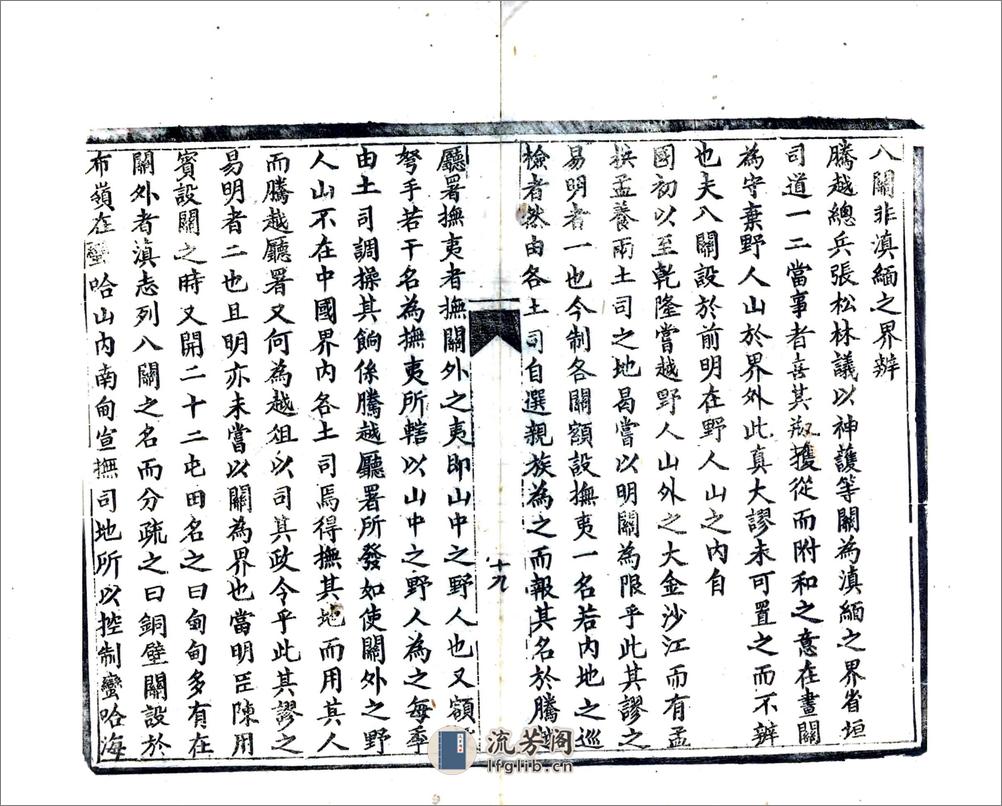 八關非滇緬之界辨
騰越總兵張松林議以神護等關為滇緬之界省垣
司道一二當事者喜其
擭從而附和之意在畫關
為守棄野人山於界外此真大謬未可置之而不辨
也夫八關設於前明在野人山之內自
國初以至乾隆嘗越野人山外之大金沙江而有孟
拱孟養兩土司之地曷嘗以明關為限乎此其謬之
易明者一也今制各關額設撫夷一名若內地之巡
檢者然由各土司自選親族為之而報其名於騰越
廳署撫夷者撫關外之夷即山中之野人也又額
弩手若干名為撫夷所轄以山中之野人為之每季
由土司調操其餉係騰越廳署所發如使關外之野
人山不在中國界內各土司焉得撫其地而用其人
而騰越廳署又何為越俎以司其政令乎此其謬之
易明者二也且明亦未嘗以關為界也當明臣陳用
賓設關之時又開二十二屯田名之曰甸甸多有在
關外者滇志列八關之名而分疏之曰銅壁關設於
布嶺在蠻哈山內南甸宣撫司地所以控制蠻哈海
十九
流芳阁
lfglib.cn